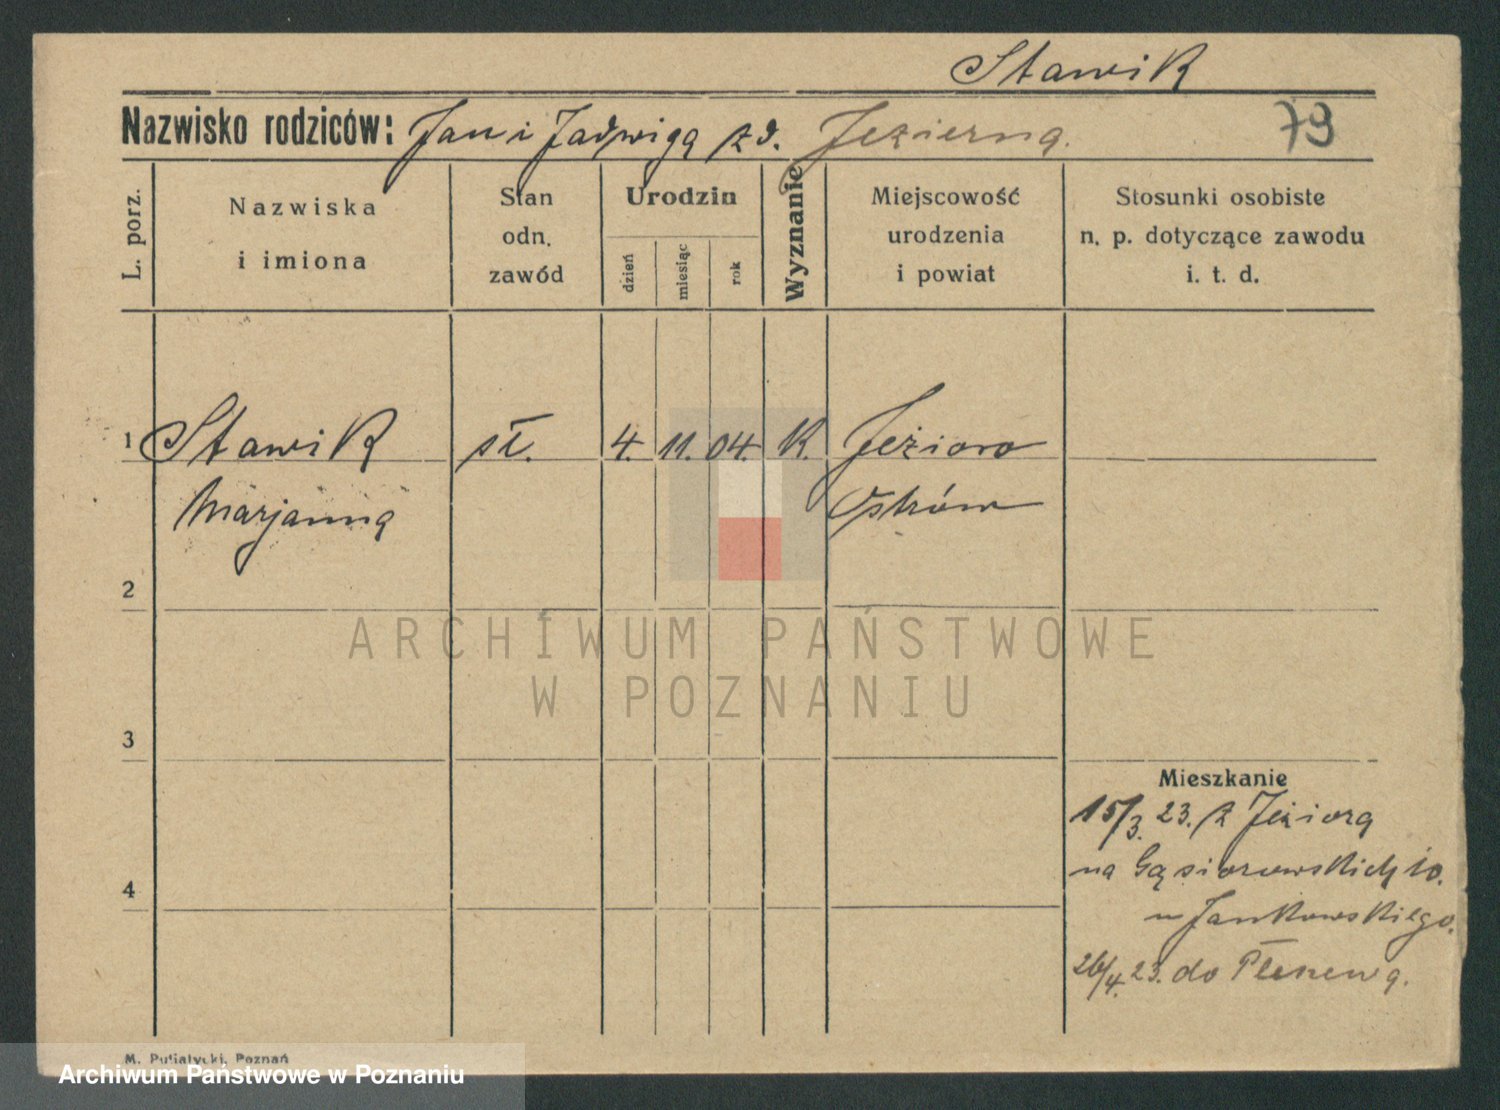 Stawik
Nazwisko rodziców: Jan i Jadwiga z d. Jezierna. 79
L. porz.
Nazwiska
i imiona
Stan
odn.
zawód
Urodzin
dzień
miesiąc
rok
Wyznanie
Miejscowość
urodzenia
i powiat
Stosunki osobiste
n. p. dotyczące zawodu
i. t. d.
1 Stawik sł. 4. 11. 04. K. Jezioro
Marjanna Ostrów
2
3
4
Mieszkanie
15/3. 23. z Jeziora
na Gąsiorowskich 10.
u Jankowskiego.
26/4. 23. do Pleszewa.
M. Putiatycki, Poznań
ARCHIWUM PAŃSTWOWE
W POZNANIU
Archiwum Państwowe w Poznaniu